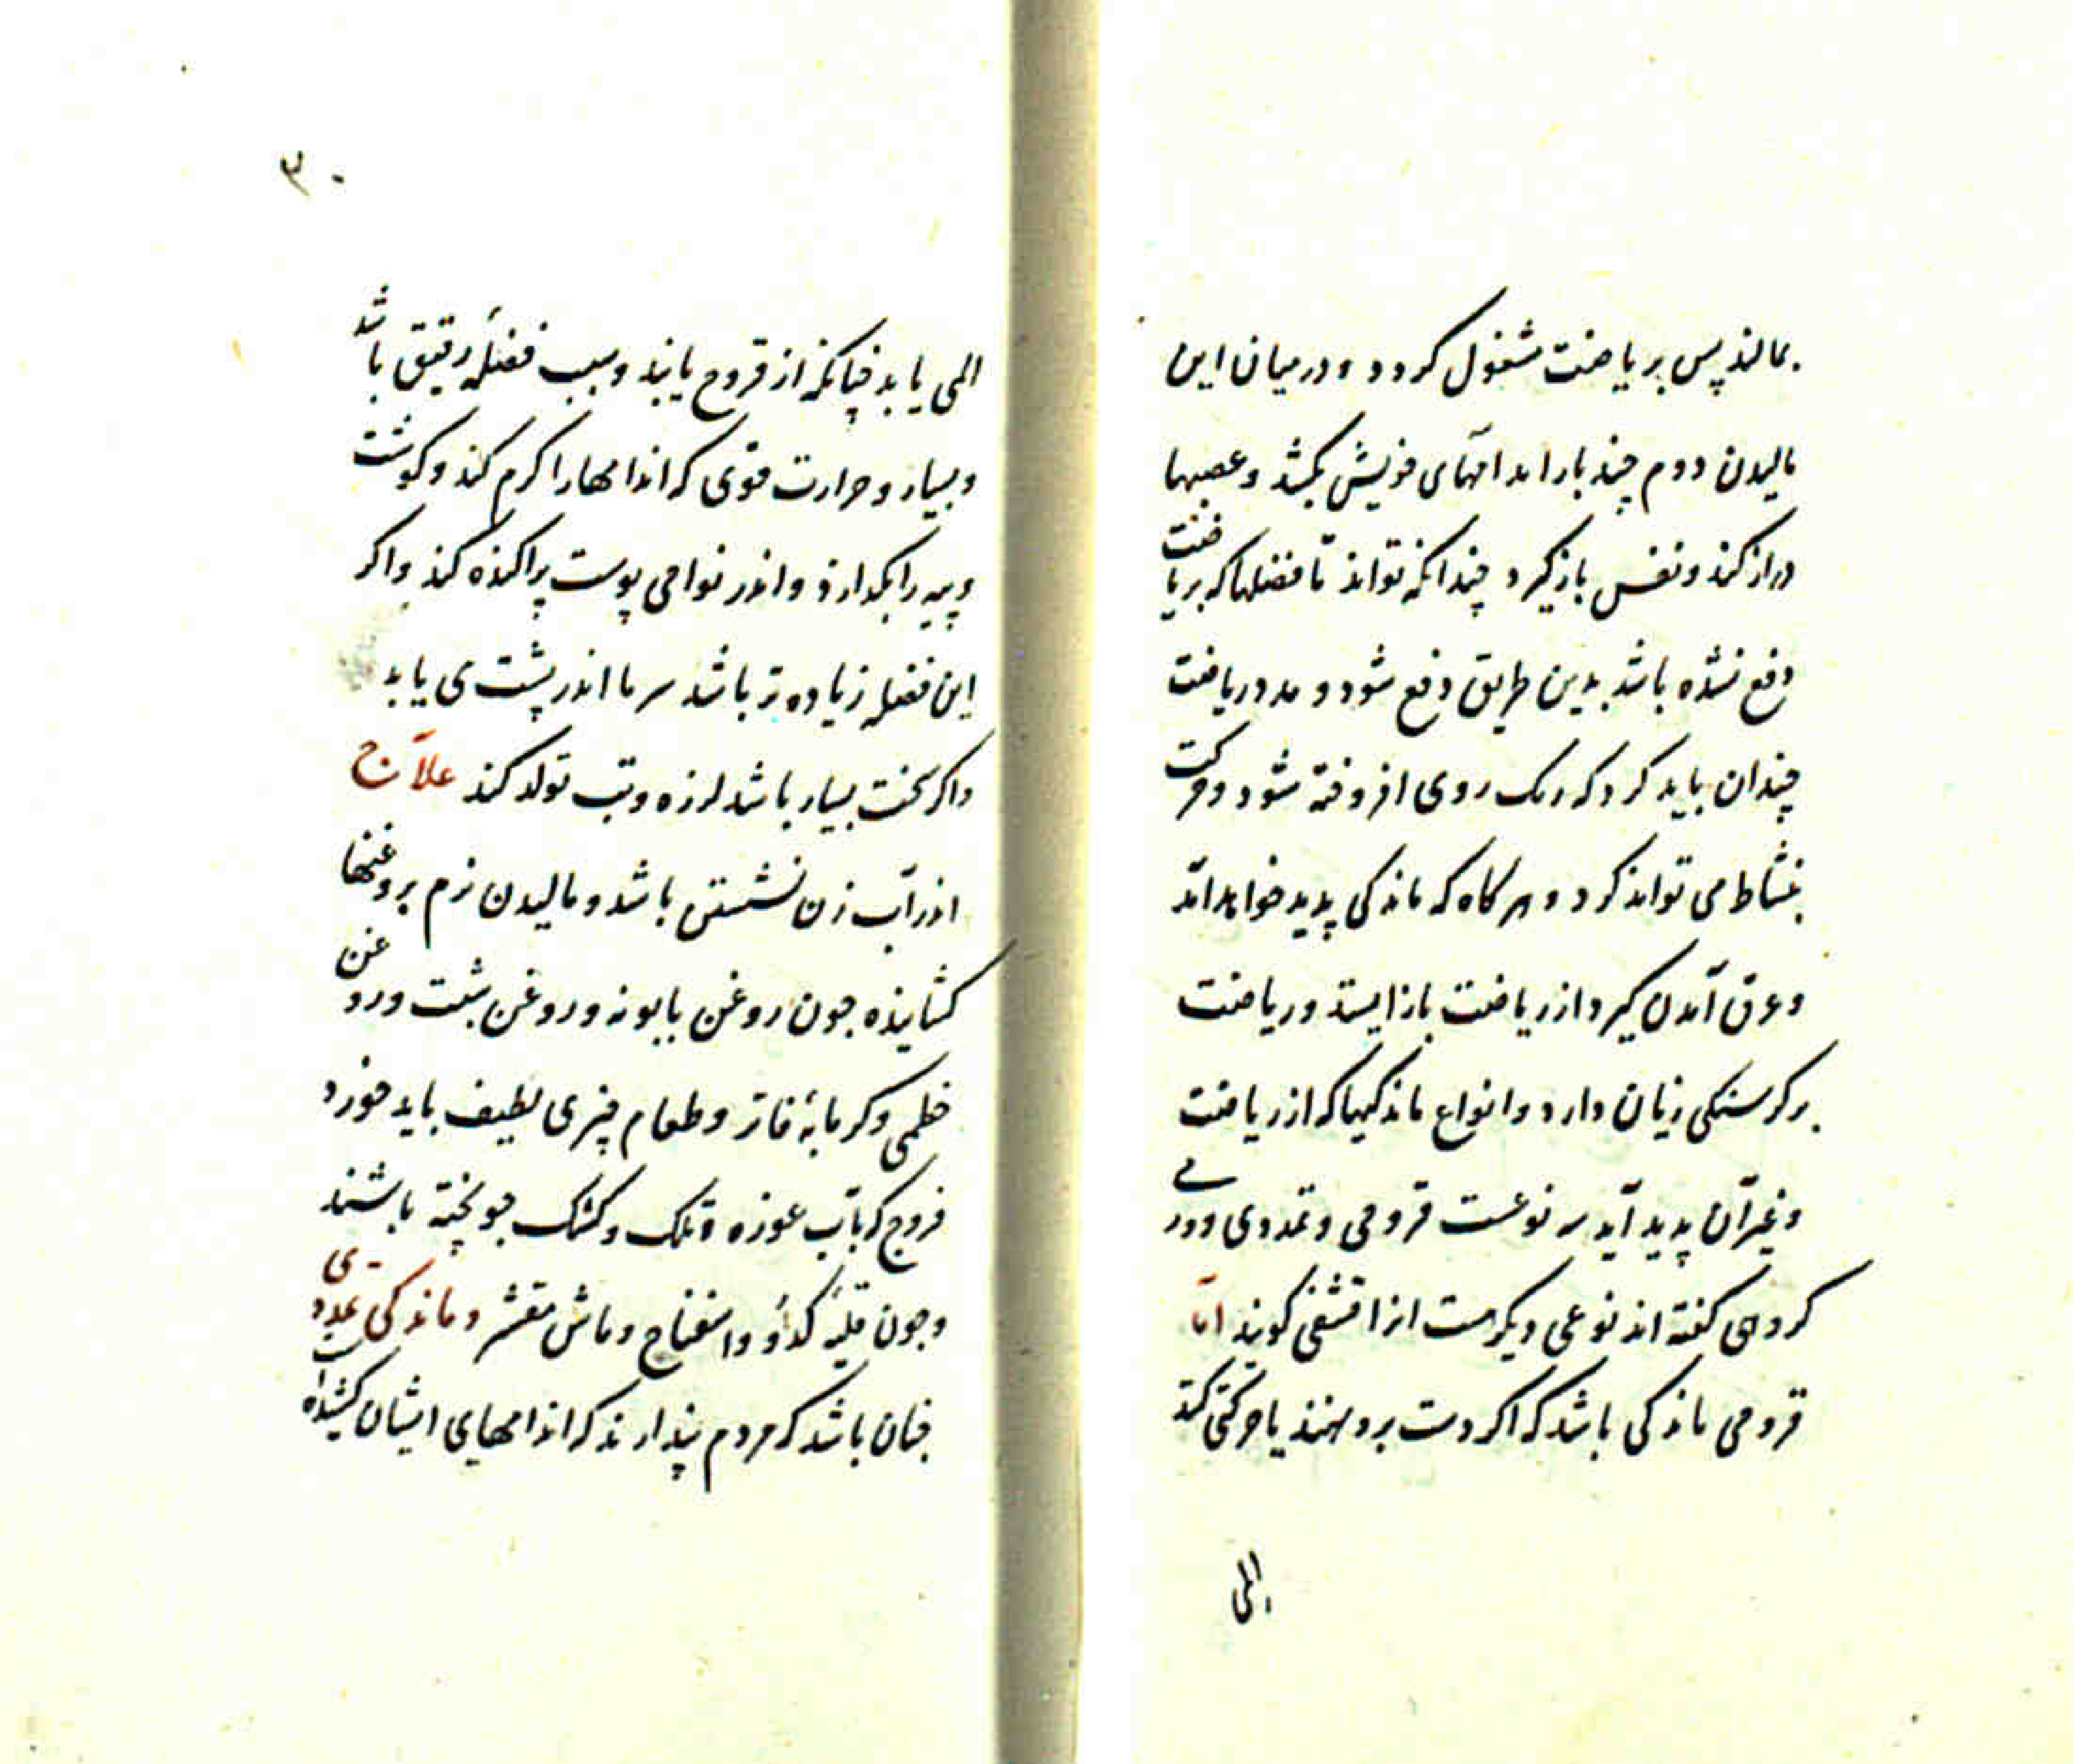 بمالند پس بریاضت مشغول کردد و درمیان این
مالیدن دوم چند بار اندامهای خویش بکشد و عصبها
دراز کند و نفس بازکیرد چندانکه تواند تا فضلها که بریاضت
دفع نشده باشد بدین طریق دفع شود و مدد ریاضت
چندان باید کرد که رنک روی افروخته شود و حرکت
بنشاط می تواند کرد و هرکاه که ماندکی پدید خواهد آمد
و عرق آمدن کیرد از ریاضت باز ایستد و ریاضت
بر کرسنکی زیان دارد و انواع ماندکیها که از ریاضت
و غیر آن پدید آید سه نوعست قروحی و تمددی و ورمی
کروهی کفته اند نوعی دیکرست انرا قشفی کویند اما
قروحی ماندکی باشد که اکر دست برو نهند یا حرکتی کند
المی
۳۰
المی یابد چنانکه از قروح یابند و سبب فضلهٔ رقیق باشد
و بسیار و حرارت قوی که اندامها را کرم کند و کوشت
و پیه را بکدازد و اندر نواحی پوست پراکنده کند و اکر
این فضله زیاده تر باشد سرما اندر پشت می یابد
و اکر سخت بسیار باشد لرزه و تب تولد کند علاج
اندر آب زن نشستن باشد و مالیدن نرم بروغنها
کشاینده جون روغن بابونه و روغن شبت و روغن
خطمی و کرمابهٔ فاتر و طعام چیزی لطیف باید خورد
فروج که بآب غوره و نمک و کشک جو پخته باشند
و جون قلیهٔ کدو و اسفناخ و ماش مقشر و ماندکی تمددی
جنان باشد که مردم پندارند که اندامهای ایشان کشیده است